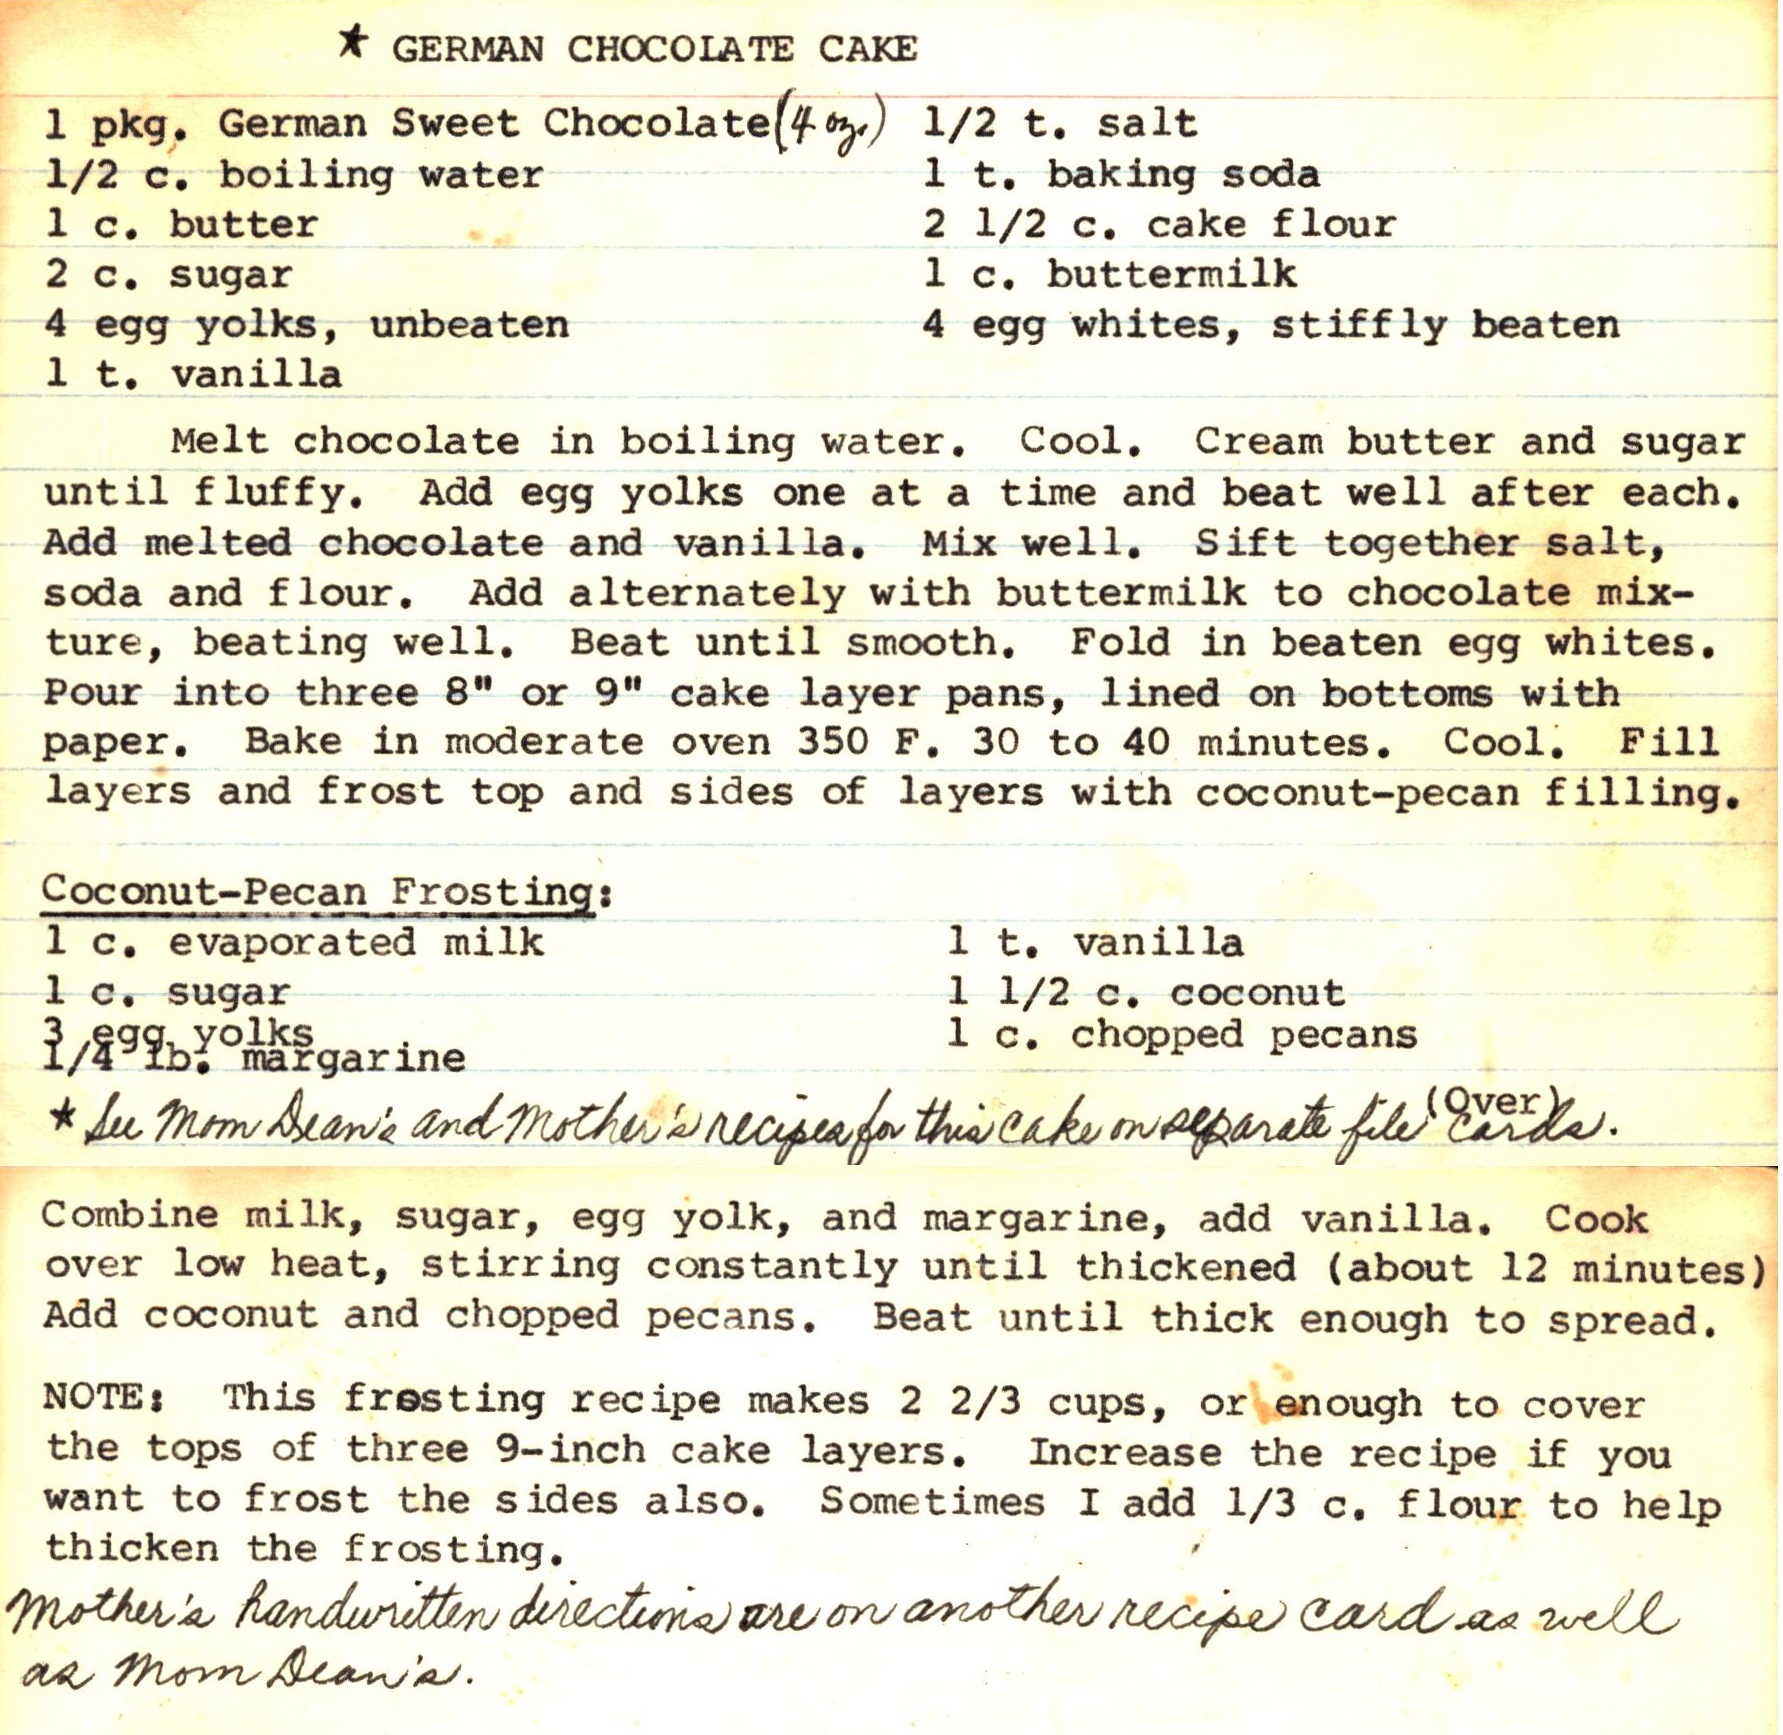 ★ GERMAN CHOCOLATE CAKE
1 pkg. German Sweet Chocolate (4 oz.) 1/2 t. salt
1/2 c. boiling water 1 t. baking soda
1 c. butter 2 1/2 c. cake flour
2 c. sugar 1 c. buttermilk
4 egg yolks, unbeaten 4 egg whites, stiffly beaten
1 t. vanilla
Melt chocolate in boiling water. Cool. Cream butter and sugar
until fluffy. Add egg yolks one at a time and beat well after each.
Add melted chocolate and vanilla. Mix well. Sift together salt,
soda and flour. Add alternately with buttermilk to chocolate mix-
ture, beating well. Beat until smooth. Fold in beaten egg whites.
Pour into three 8" or 9" cake layer pans, lined on bottoms with
paper. Bake in moderate oven 350 F. 30 to 40 minutes. Cool. Fill
layers and frost top and sides of layers with coconut-pecan filling.
Coconut-Pecan Frosting:
1 c. evaporated milk 1 t. vanilla
1 c. sugar 1 1/2 c. coconut
3 egg yolks 1 c. chopped pecans
1/4 lb. margarine
(Over)
★ See Mom Dean's and Mother's recipes for this cake on separate file cards.
Combine milk, sugar, egg yolk, and margarine, add vanilla. Cook
over low heat, stirring constantly until thickened (about 12 minutes)
Add coconut and chopped pecans. Beat until thick enough to spread.
NOTE: This frosting recipe makes 2 2/3 cups, or enough to cover
the tops of three 9-inch cake layers. Increase the recipe if you
want to frost the sides also. Sometimes I add 1/3 c. flour to help
thicken the frosting.
Mother's handwritten directions are on another recipe card as well
as Mom Dean's.